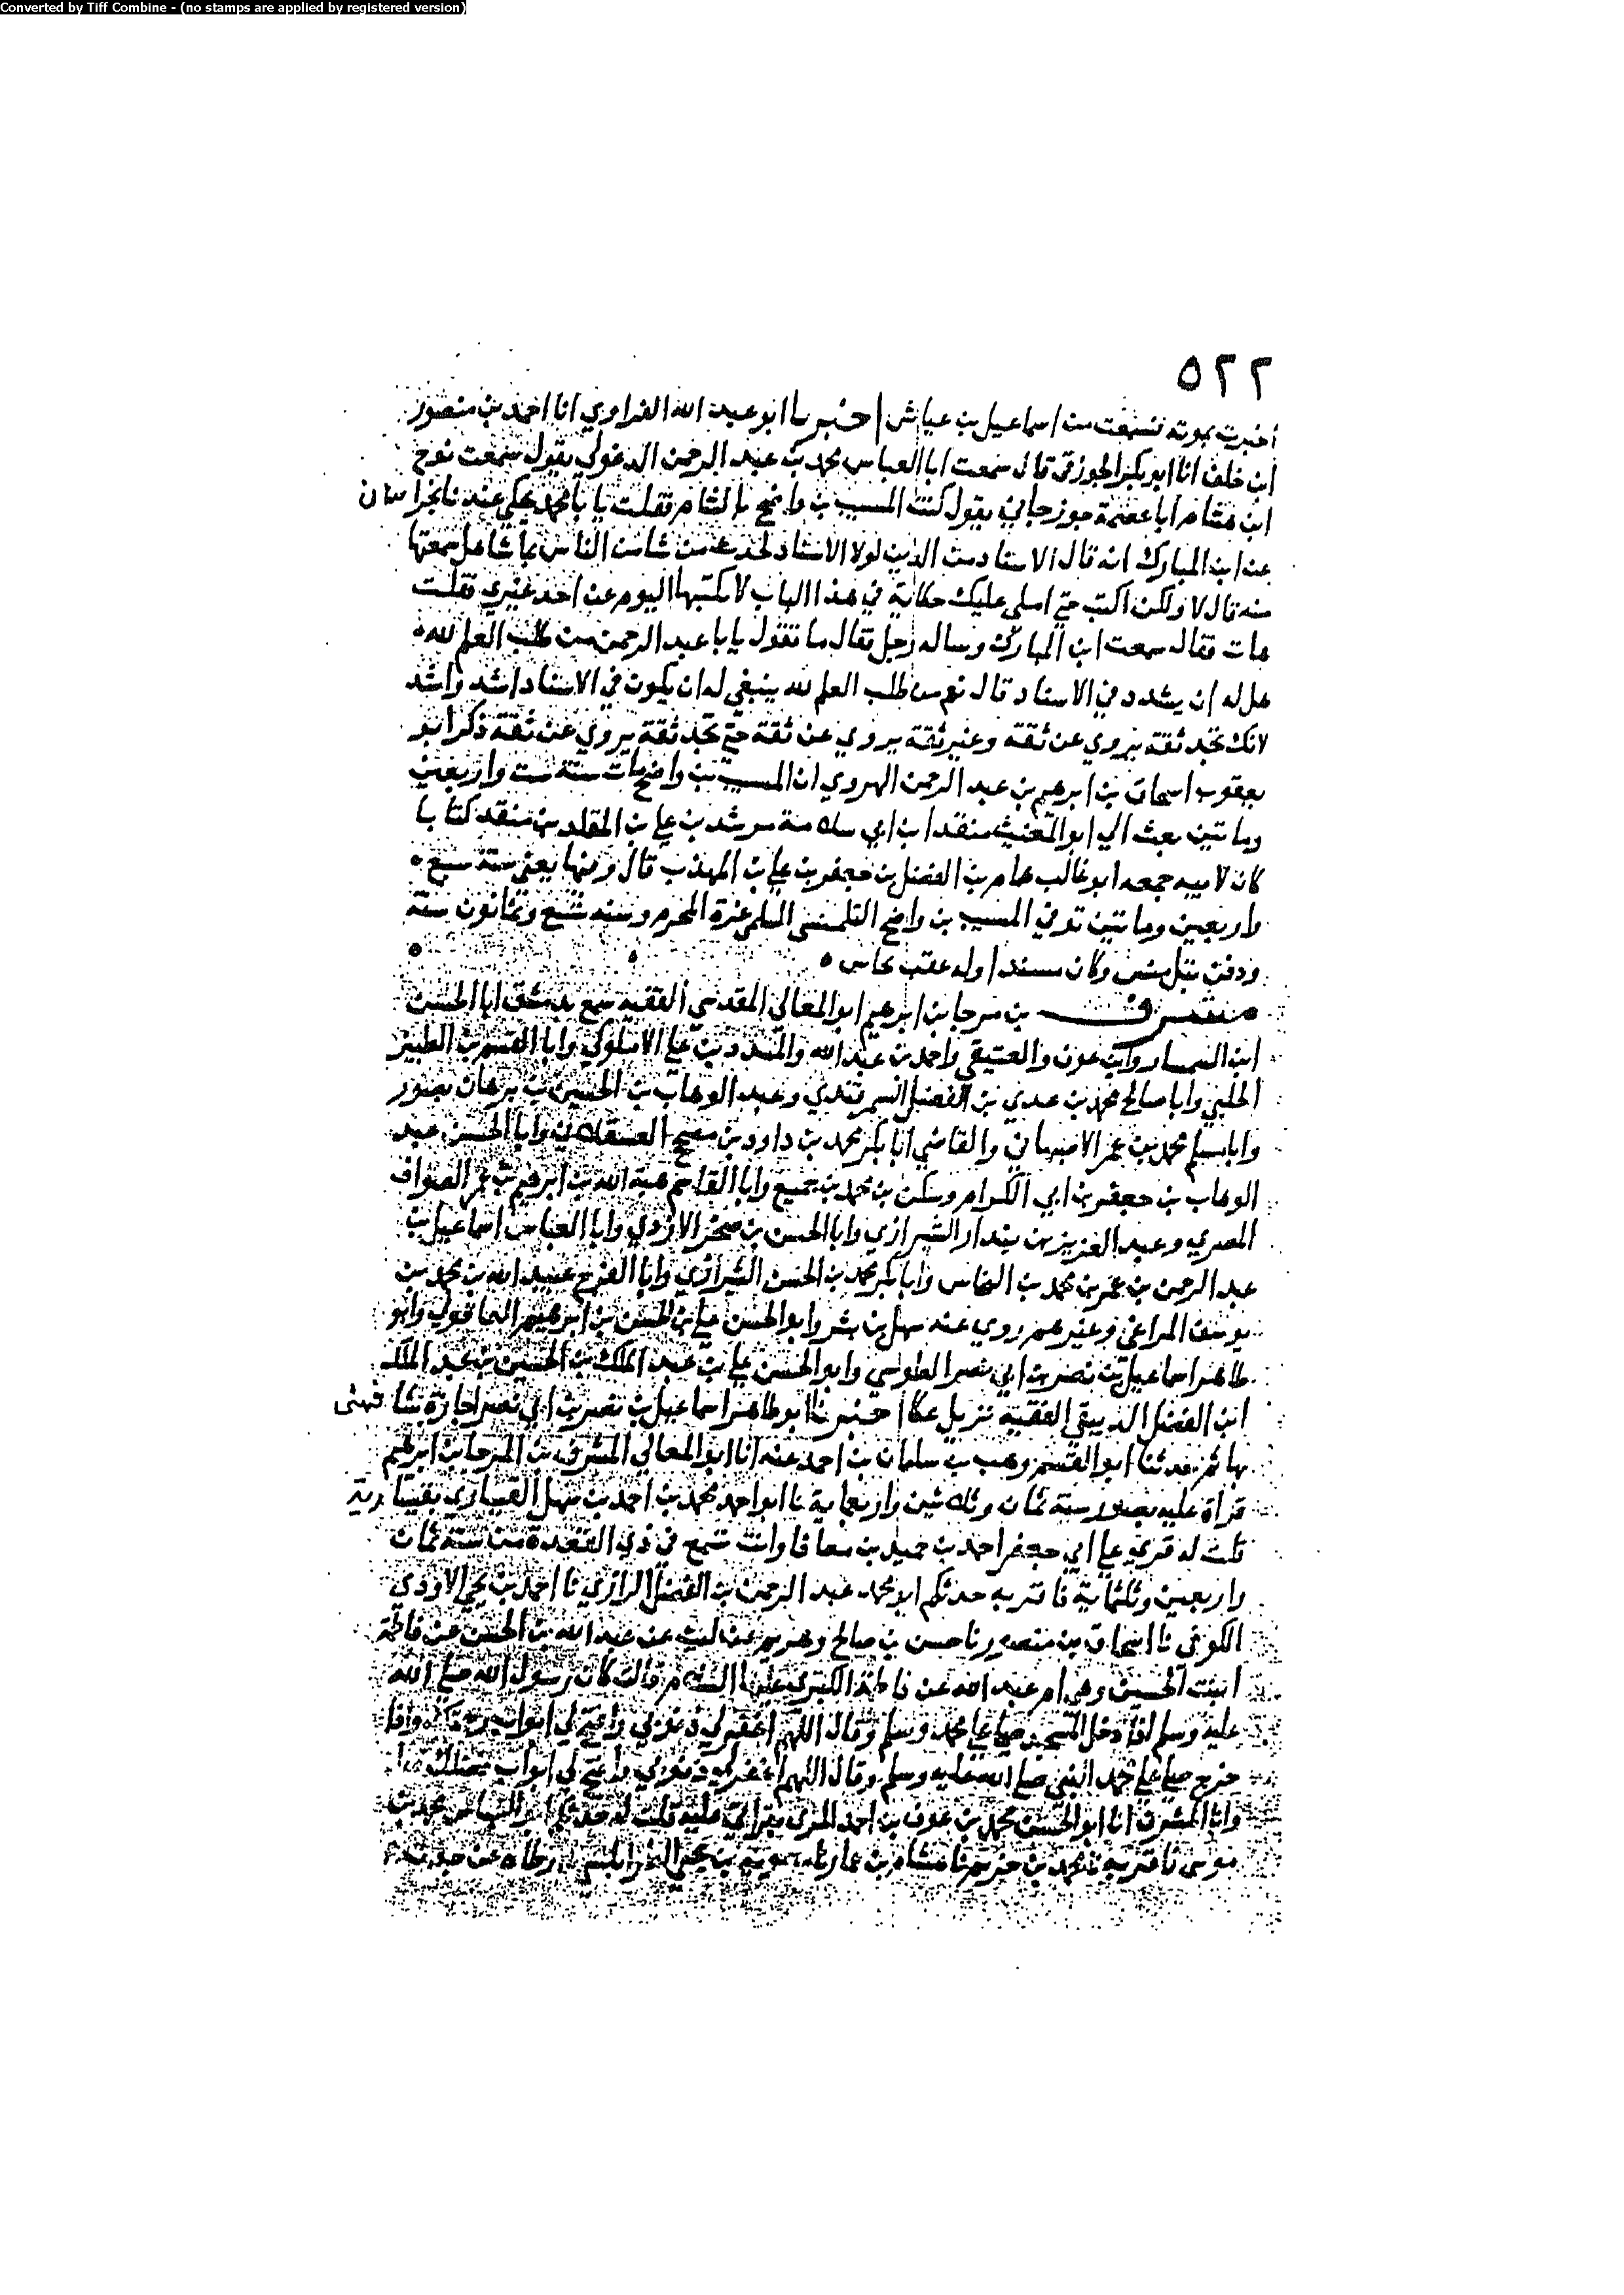 Converted by Tiff Combine - (no stamps are applied by registered version)
٥٢٢
اخبرت بموته من اسماعيل بن عياش اخبرنا ابو عبد الله الفراوي انا احمد بن منصور
ابن خلف انا ابو بكر الجوزقي قال سمعت ابا العباس محمد بن عبد الرحمن الدغولي يقول سمعت نوح
ابن هشام ابا عصمة جوزجاني يقول كنت المسيب بن واضح بالشام فقلت يا با محمد يحكي عندنا بخراسان
عن ابن المبارك انه قال الاسناد من الدين لولا الاسناد لحدث من شا من الناس بما شا هل سمعتها
منه قال لا ولكن اكتب حتي املي عليك حكاية في هذا الباب لا تكتبها اليوم عن احد غيري فقلت
هات فقال سمعت ابن المبارك وساله رجل فقال ما تقول يا با عبد الرحمن من طلب العلم لله
هل له ان يشدد في الاسناد قال نعم من طلب العلم لله ينبغي له ان يكون في الاسناد اشد واشد
لانك تجد ثقة يروي عن ثقة وغير ثقة يروي عن ثقة حتي تجد ثقة يروي عن ثقة ذكر ابو
يعقوب اسحاق بن ابرهيم بن عبد الرحمن الهروي ان المسيب بن واضح مات سنة ست واربعين
وماتين بعث الي ابو المغيث منقذ ابن ابي سلامة مرشد بن علي بن المقلد بن منقذ كتابا
كان لابيه جمعه ابو غالب همام بن الفضل بن جعفر بن علي بن المهذب قال وفيها يعني سنة سبع
واربعين وماتين توفي المسيب بن واضح التلمنسي السلمي غرة المحرم وسنه تسع وثمانون سنة
ودفن بتل منس وكان مسندا وله عقب بحاس
مشرف بن مرجا بن ابرهيم ابو المعالي المقدسي الفقيه سمع بدمشق ابا الحسن
ابن السمسار وابن عوف والعتيقي واحمد بن عبد الله والمسدد بن علي الاملوكي وابا القسم بن الطبيز
الحلبي وابا صالح محمد بن عدي بن الفضل السمرقندي وعبد الوهاب بن الحسين بن برهان بصور
وابا مسلم محمد بن عمر الاصبهاني والقاضي ابا بكر محمد بن داود بن مصحح العسقلاني وابا الحسن عبد
الوهاب بن جعفر بن ابي الكرام وسكن بن محمد بن جميع وابا القاسم هبة الله بن ابرهيم بن عمر الصواف
المصري وعبد العزيز بن بندار الشيرازي وابا الحسن بن صخر الازدي وابا العباس اسماعيل بن
عبد الرحمن بن عمر بن محمد بن النحاس وابا بكر محمد بن الحسن الشيرازي وابا الفرج عبيد الله بن محمد بن
يوسف المراغي وغيرهم روي عنه سهل بن بشر وابو الحسن علي بن الحسن بن ابرهيم العاقولي وابو
طاهر اسماعيل بن نصر بن ابي نصر الطوسي وابو الحسن علي بن عبد الملك بن الحسين بن عبد الملك
ابن الفضل الدبيقي الفقيه نزيل عكا اخبرنا ابو طاهر اسماعيل بن نصر بن ابي نصر اجازة شافهني
بها ثم حدثنا ابو القسم وهب بن سلمان بن احمد عنه انا ابو المعالي المشرف بن المرجا بن ابرهيم
قراة عليه بصور سنة ثمان وثلاثين واربعماية نا ابو احمد محمد بن احمد بن سهل القيسراني بقيسارية
قلت له قري علي ابي جعفر احمد بن حميد بن معافا وانت تسمع في ذي القعدة من سنة ثمان
واربعين وثلثماية فاقر به حدثكم ابو محمد عبد الرحمن بن الفضل الرازي نا احمد بن يحيي الاودي
الكوفي نا اسحاق بن منصور نا حسن بن صالح وهريم عن ليث عن عبد الله بن الحسن عن فاطمة
ابنت الحسين وهي ام عبد الله عن فاطمة الكبري عليها السلام قالت كان رسول الله صلي الله
عليه وسلم اذا دخل المسجد صلي علي محمد وسلم وقال اللهم اغفر لي ذنوبي وافتح لي ابواب رحمتك واذا
خرج صلي علي محمد النبي صلي الله عليه وسلم وقال اللهم اغفر لي ذنوبي وافتح لي ابواب فضلك
وانا المشرف انا ابو الحسن محمد بن عوف بن احمد المزي بقراتي عليه قلت له حدثكم ابو العباس محمد بن
موسي فاقر به نا محمد بن خريم نا هشام بن عمار نا معوية بن يحيي الطرابلسي ارطاة عن